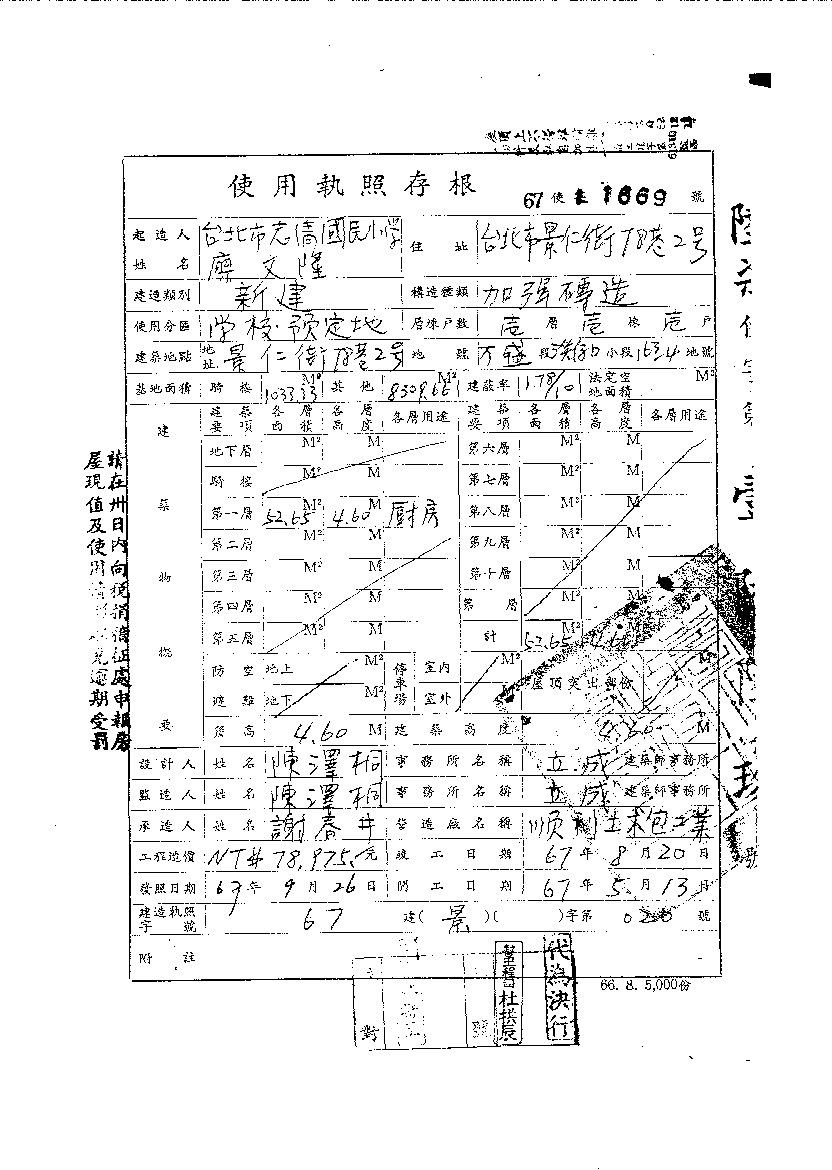 使用執照存根
67 使 1669 號
起造人姓名 台北市志清國民小学 廖文隆 住址 台北市景仁街78巷2号
建造類別 新建 構造種類 加强磚造
使用分區 学校預定地 層棟戶數 壱層壱棟壱戶
建築地點 地址 景仁街78巷2号 地號 万盛段 小段 163-4 地號
基地面積 騎樓 1033.33 M² 其他 8309.66 M² 建蔽率 法定空地面積 M²
建築物概要
建築要項 各層面積 各層高度 各層用途 建築要項 各層面積 各層高度 各層用途
地下層 M² M 第六層 M² M
騎樓 M² M 第七層 M² M
第一層 52.65 M² 4.60 M 厨房 第八層 M² M
第二層 M² M 第九層 M² M
第三層 M² M 第十層 M² M
第四層 M² M 第 層 M² M
第五層 M² M 計 52.65 M² 4.60 M
防空避難 地上 M² 停車場 室內 M² 屋頂突出部份 M²
地下 M² 室外
簷高 4.60 M 建築高度 4.60 M
設計人 姓名 陳澤桐 事務所名稱 立成 建築師事務所
監造人 姓名 陳澤桐 事務所名稱 立成 建築師事務所
承造人 姓名 謝春井 營造廠名稱 順利土木包工業
工程造價 NT$ 78,975.元 竣工日期 67年8月20日
發照日期 67年9月26日 開工日期 67年5月13日
建造執照字號 67 建(景)( )字第 號
附註
66. 8. 5,000份
請在卅日內向稅捐稽征處申報房
屋現值及使用情形 逾期受罰
代為決行
對
號